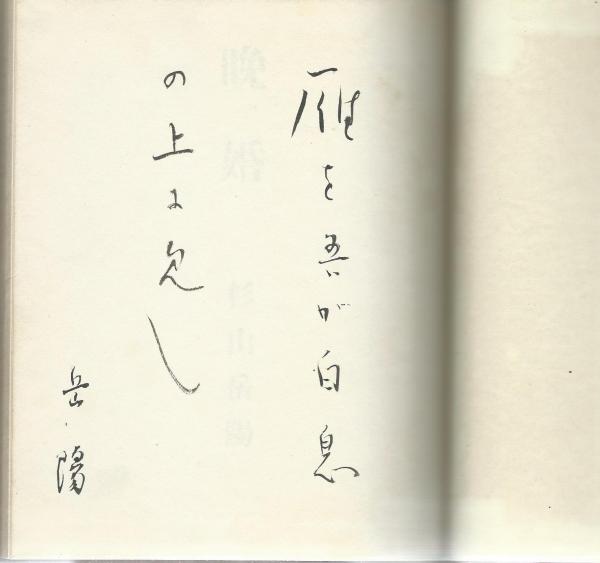 雁を吾が白息
の上に見し
岳陽
晩婚
杉山岳陽